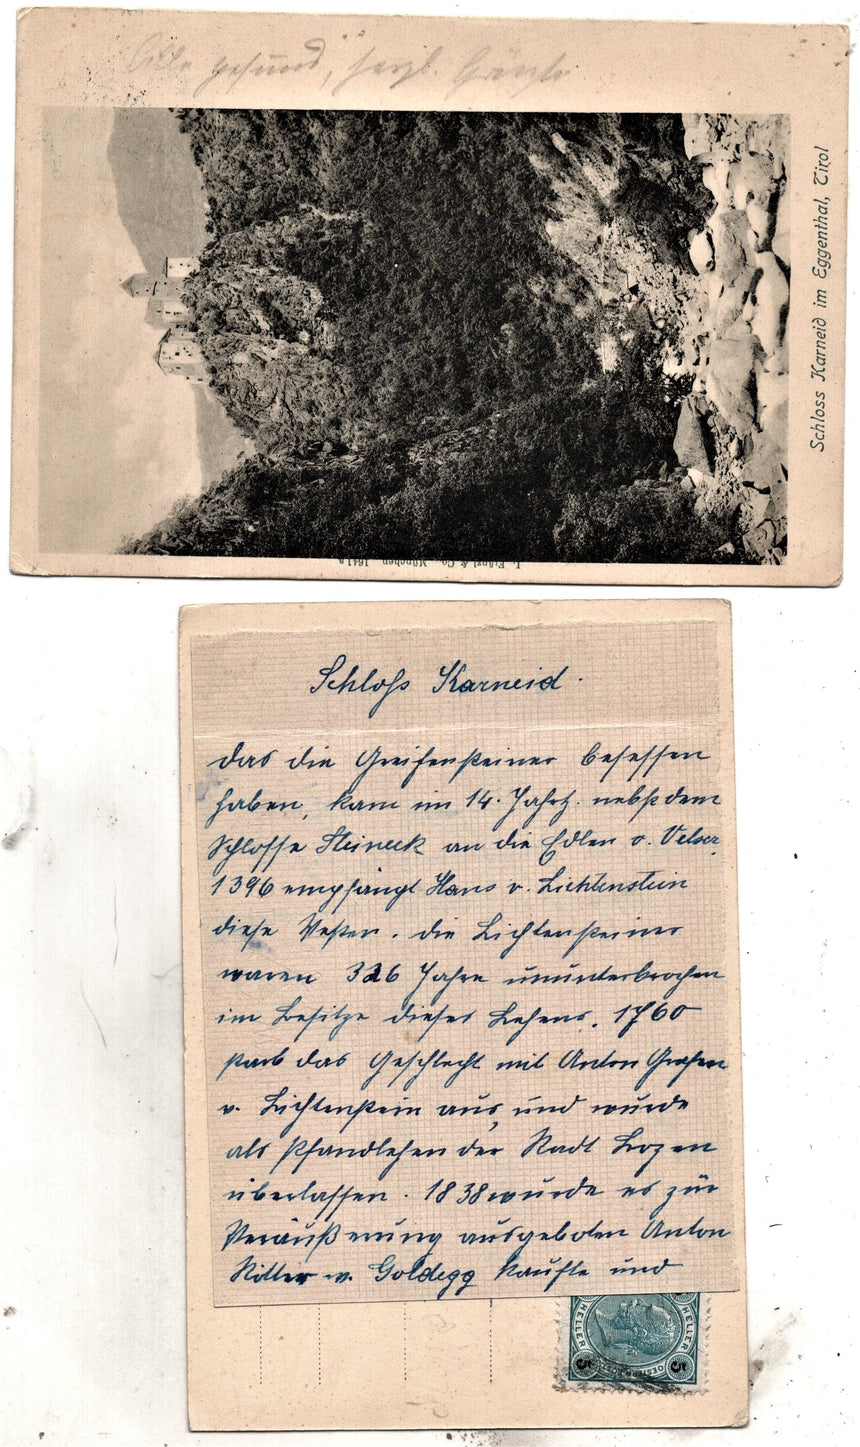 Alle gesund, herzl. Grüße
Schloss Karneid im Eggenthal, Tirol
L. Fränzl & Co., München 1641 a
Schloß Karneid.
das die Greifensteiner besessen
haben, kam im 14. Jahrh. nebst dem
Schlosse Steineck an die Edlen v. Velser.
1396 empfängt Hans v. Lichtenstein
diese Vesten. die Lichtensteiner
waren 326 Jahre ununterbrochen
im Besitze dieses Lehens. 1760
starb das Geschlecht mit Anton Grafen
v. Lichtenstein aus, und wurde
als Pfandlehen der Stadt Bozen
überlassen. 1838 wurde es zur
Veräußerung ausgeboten Anton
Ritter v. Goldegg kaufte und
HELLER
HELLER
5
5